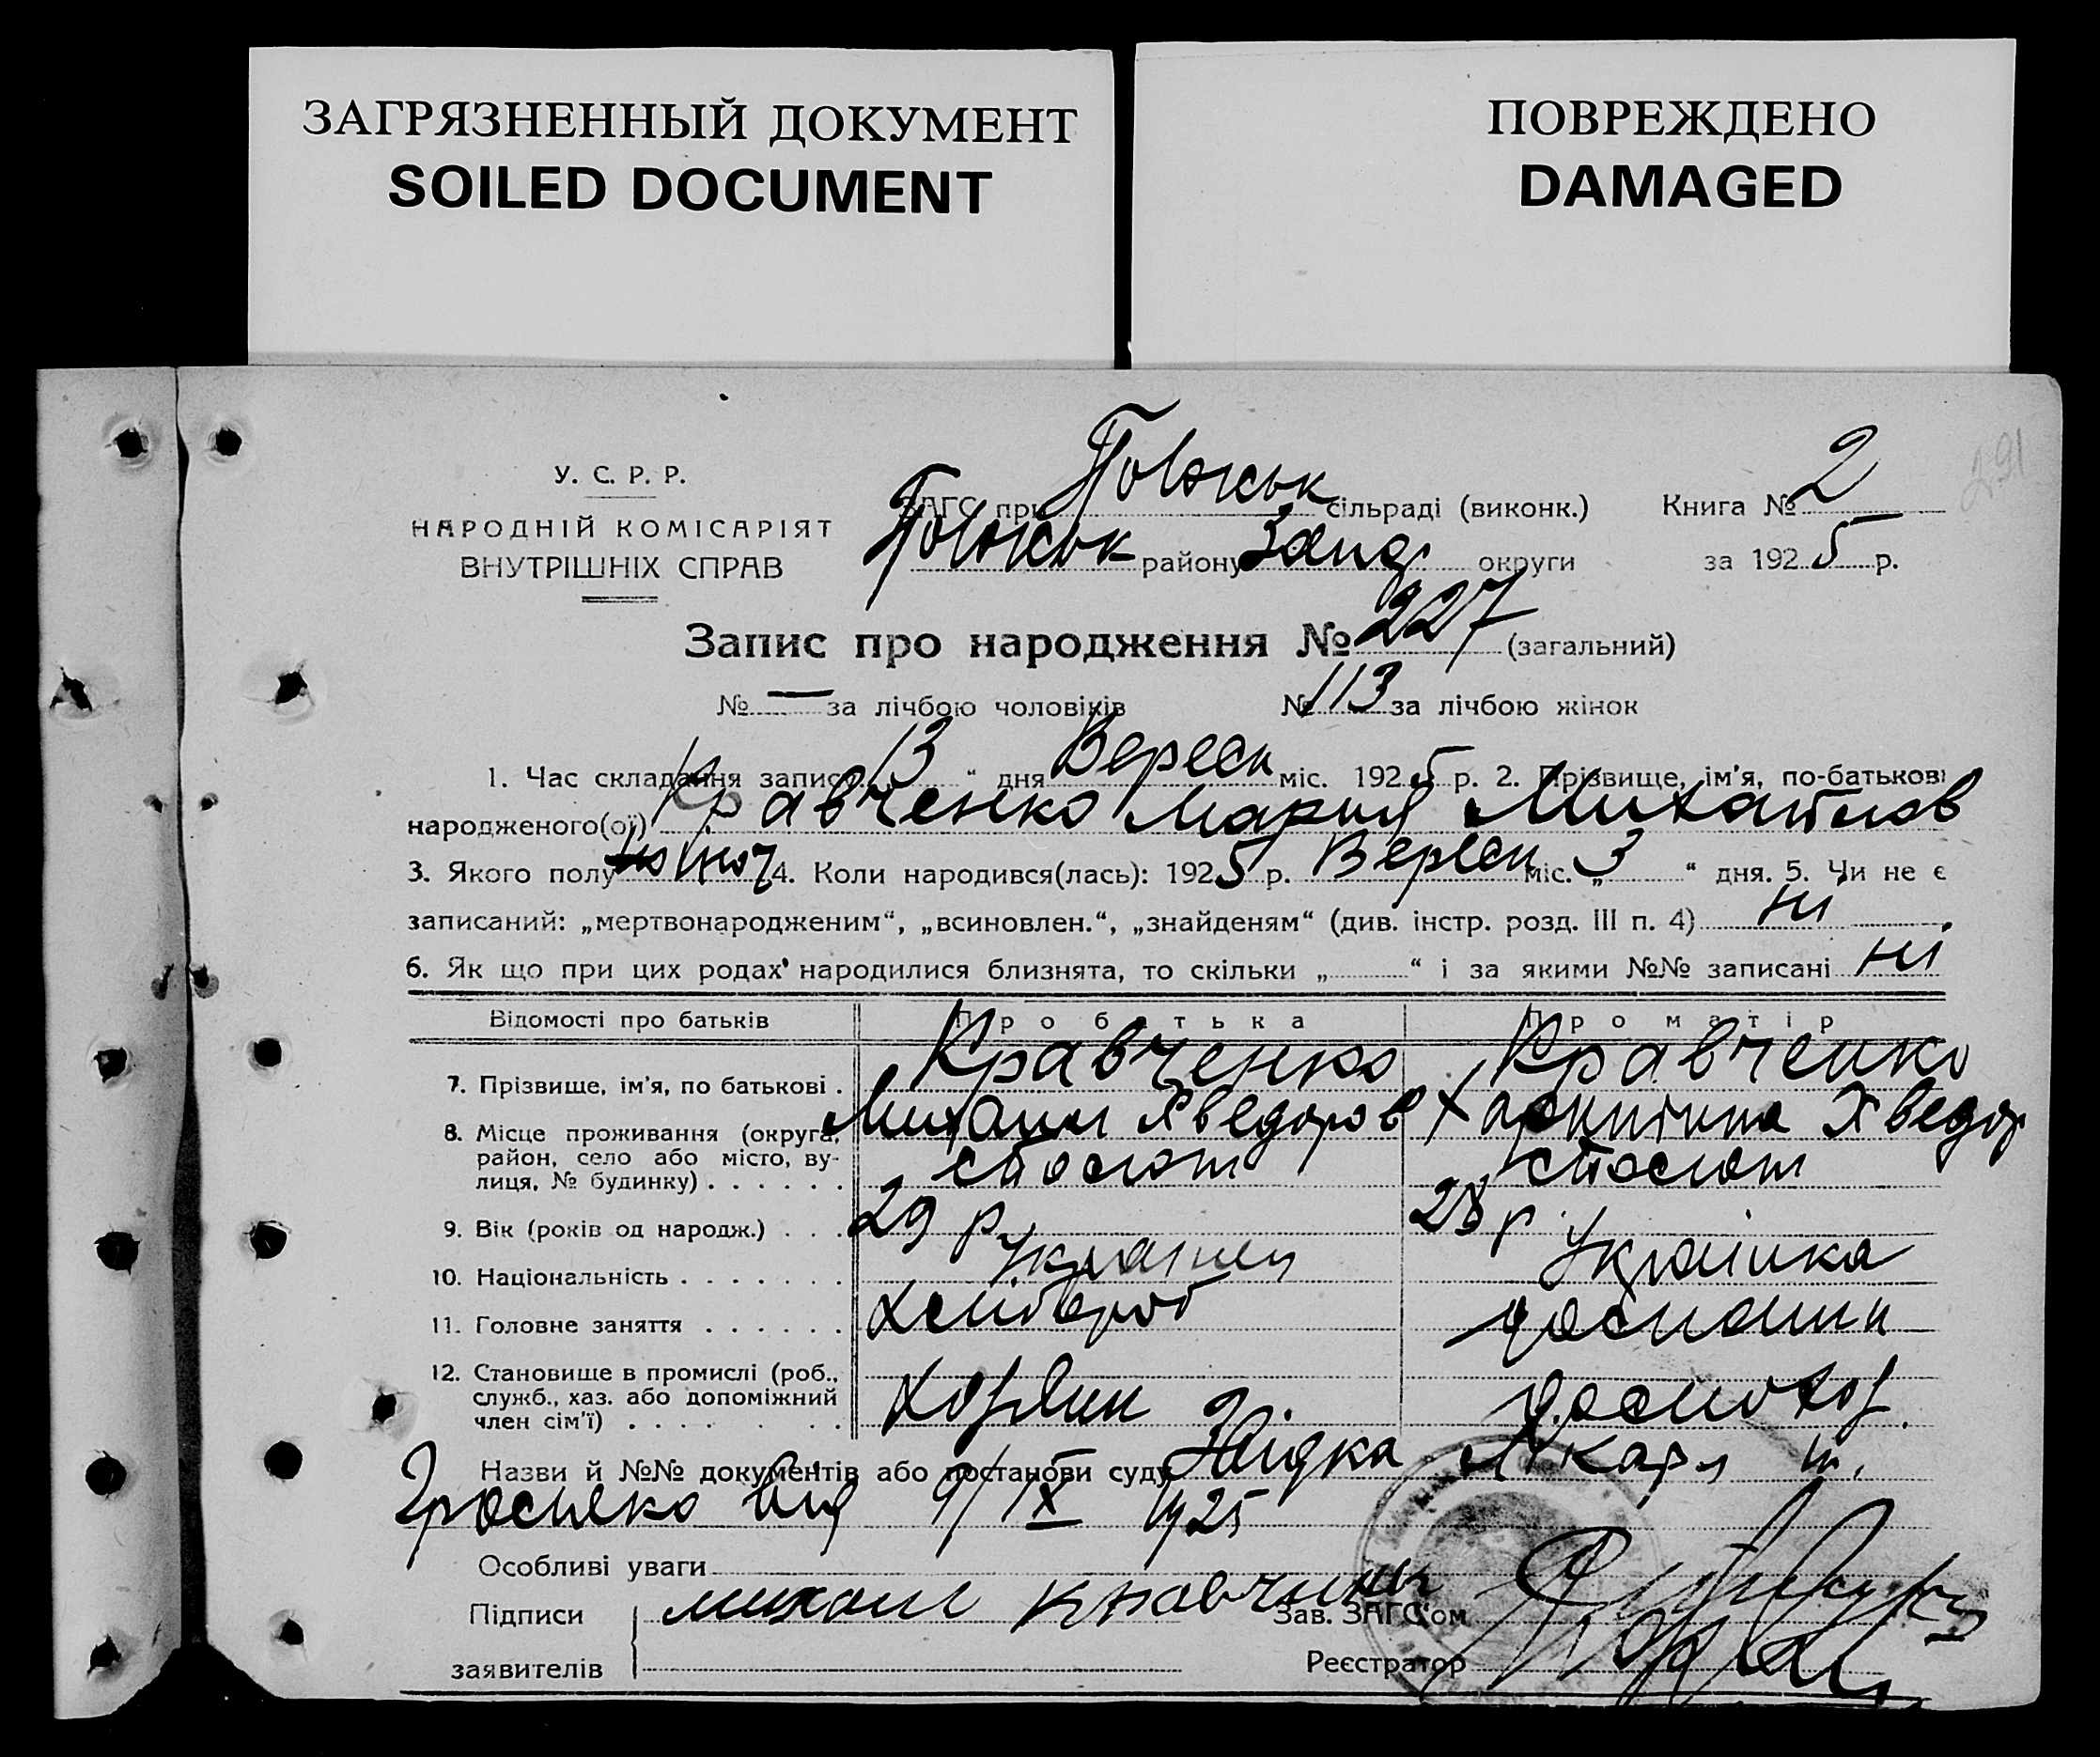 ЗАГРЯЗНЕННЫЙ ДОКУМЕНТ
SOILED DOCUMENT
ПОВРЕЖДЕНО
DAMAGED
291
У. С. Р. Р.
НАРОДНІЙ КОМІСАРІЯТ
ВНУТРІШНІХ СПРАВ
ЗАГС при сільраді (виконк.) Книга № 2
району округи за 1925 р.
Запис про народження № 227 (загальний)
№ — за лічбою чоловіків № 113 за лічбою жінок
1. Час складання запису 13 “ дня Вересн міс. 1925 р. 2. Прізвище, ім'я, по-батькові
народженого(ої) Кравченко Мария Михайлов
3. Якого полу жіноч 4. Коли народився(лась): 1925 р. Вересн міс. „ 3 “ дня. 5. Чи не є
записаний: „мертвонародженим“, „всиновлен.“, „знайденям“ (див. інстр. розд. III п. 4) ні
6. Як що при цих родах народилися близнята, то скільки „ “ і за якими №№ записані ні
Відомості про батьків Про батька Про матір
7. Прізвище, ім'я, по батькові . Кравченко Кравченко
Михаил Хведоров Хведор
8. Місце проживання (округа, район, село або місто, ву-
лиця, № будинку) . . . . . .
9. Вік (років од народж.) . . . 29 р 28 р
10. Національність . . . . . . . Українец Українка
11. Головне заняття . . . . . . Хлібороб
12. Становище в промислі (роб.,
служб., хаз. або допоміжний
член сім'ї) . . . . . . .
Назви й №№ документів або постанови суду
від 9/IX 1925
Особливі уваги
Підписи михаил Зав. ЗАГС'ом
заявителів Реєстратор